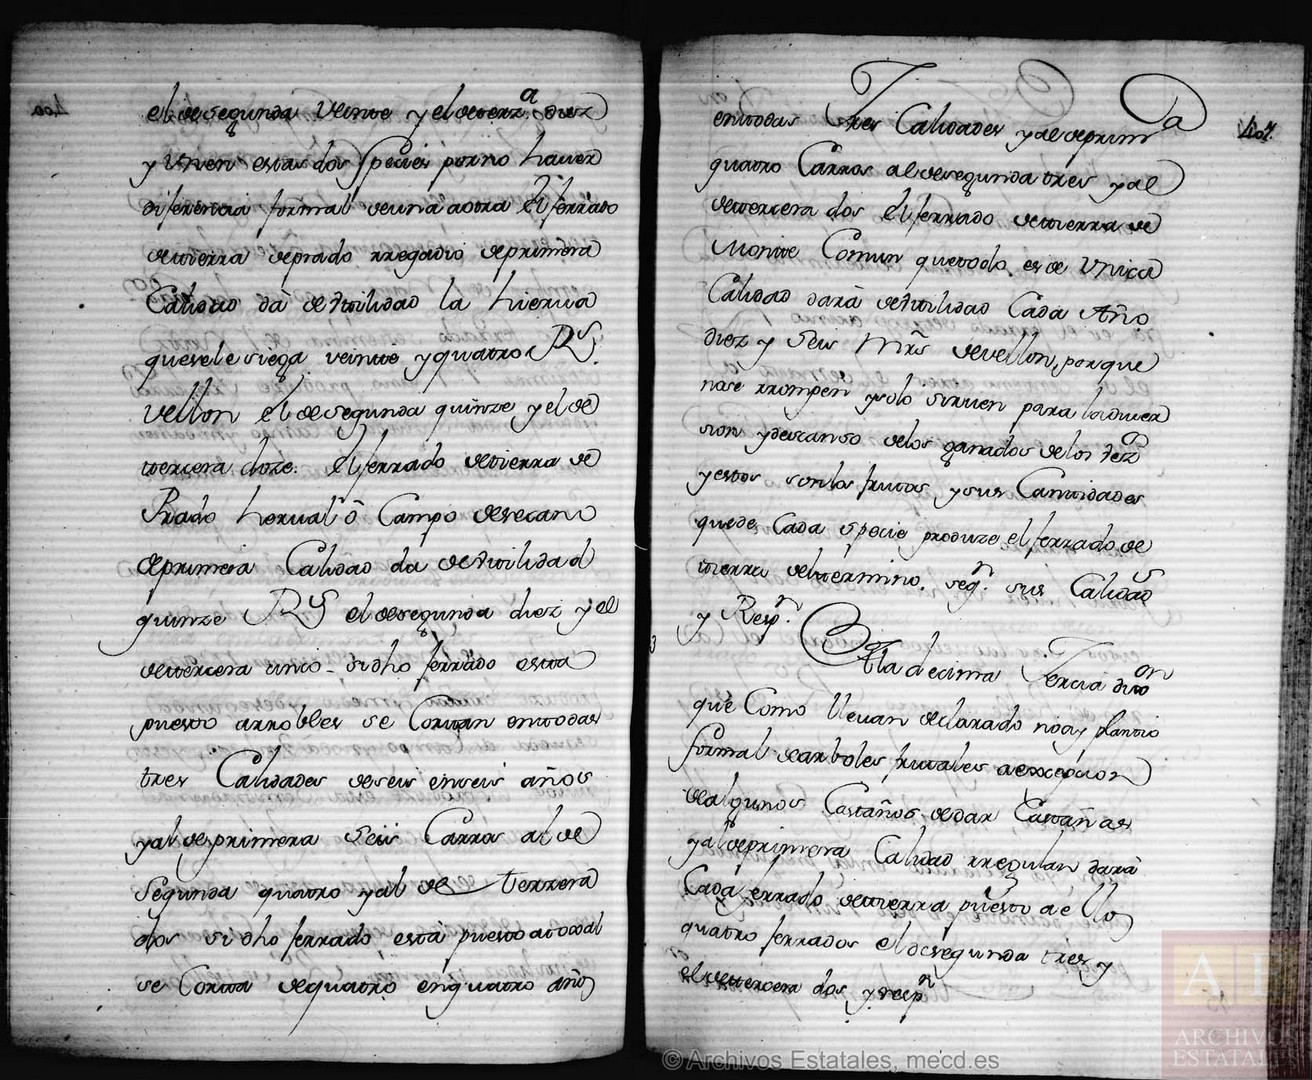 el de segunda veinte y el de terz.a diez
y vnen estas dos Species por no haver
diferencia formal de una a otra El ferrado
de tierra de prado rregadio de primera
Calidad dá de Vtilidad la hierua
que se le siega veinte y quatro R.s
vellon el de segunda quinze y el de
tercera doze. el ferrado de tierra de
Prado herual ô Campo de secano
de primera Calidad da de Vtilidad
quinze R.s el de segunda diez y el
de tercera cinco - si dho ferrado esta
puesto a rrobles se Cortan en todas
tres Calidades de seis en seis años
y al de primera seis Carros al de
Segunda quatro y al de terzera
dos si dho ferrado está puesto a toxal
se Corta de quatro en quatro años
407
en todas tres Calidades y al de prim.a
quatro Carros al de segunda tres y al
de tercera dos el ferrado de tierra de
Monte Comun que todo es de Vnica
Calidad dará de Vtilidad Cada Año
diez y Seis Mrs de vellon, porque
no se rrompen y solo siruen para la diuer
sion y descanso de los ganados de los vez.os
y estos son los frutos y sus Cantidades
que de Cada Specie produze el ferrado de
tierra del termino. seg.n sus Calidad.s
y Resp.n
A la decima Tercia dixeron
que Como lleuan declarado no ay plantio
formal de arboles frutales a excepcion
de algunos Castaños de dar Castañas
y al de primera Calidad rregulan dará
Cada ferrado de tierra puesto a ello
quatro ferrados el de segunda tres y
el de tercera dos y resp.n
© Archivos Estatales, mecd.es
ARCHIVOS
ESTATALES